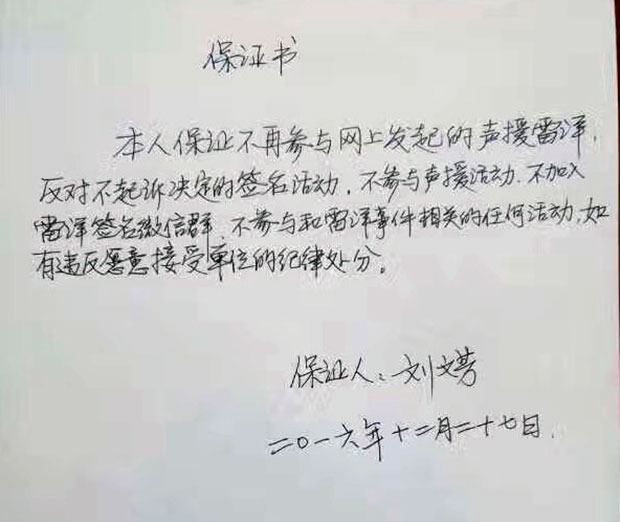 保证书
本人保证不再参与网上发起的声援雷洋,
反对不起诉决定的签名活动,不参与声援活动.不加入
雷洋签名微信群,不参与和雷洋事件相关的任何活动,如
有违反愿意接受单位的纪律处分。
保证人:刘文芳
二〇一六年十二月二十七日.